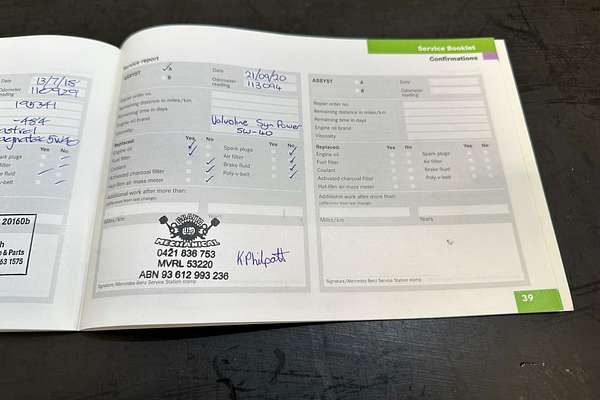 Service Booklet
Confirmations
Date 13/7/18
Odometer reading 110929
195341
-484
5W40
Yes No
20160b
& Parts
63 1575
Service report
ASSYST A
B
Date 21/09/20
Odometer reading 113094
Repair order no.
Remaining distance in miles/km
Remaining time in days
Engine oil brand Valvoline Syn Power
Viscosity 5W-40
Replaced: Yes No Yes No
Engine oil Spark plugs
Fuel filter Air filter
Coolant Brake fluid
Activated charcoal filter Poly-v-belt
Hot-film air mass meter
Additional work after more than:
(difference from last change)
Miles/km Years
MECHANICAL
0421 836 753
MVRL 53220
ABN 93 612 993 236
K Philpott
Signature/Mercedes-Benz Service Station stamp
ASSYST A
B
Date
Odometer reading
Repair order no.
Remaining distance in miles/km
Remaining time in days
Engine oil brand
Viscosity
Replaced: Yes No Yes No
Engine oil Spark plugs
Fuel filter Air filter
Coolant Brake fluid
Activated charcoal filter Poly-v-belt
Hot-film air mass meter
Additional work after more than:
(difference from last change)
Miles/km Years
Signature/Mercedes-Benz Service Station stamp
39